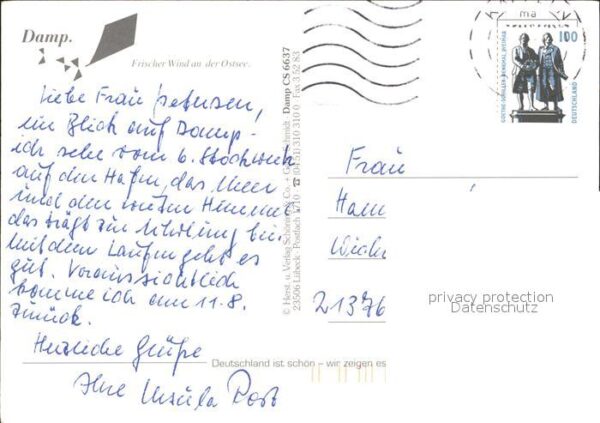 Damp.
Frischer Wind an der Ostsee.
Liebe Frau Petersen,
ein Blick auf Damp -
ich sehe vom 6. Stockwerk
auf den Hafen, das Meer
und den weiten Himmel
das trägt zur Erholung bei.
Mit dem Laufen geht es
gut. Voraussichtlich
komme ich am 11.8.
zurück.
Herzliche Grüße
Ihre Ursula Post
© Herst. u. Verlag Schöning & Co. + Gebrüder Schmidt
23506 Lübeck · Postfach
☎ (04 51) 310 310 0
Damp CS 6637
Fax 3 52 83
Deutschland ist schön – wir zeigen es
100
GOETHE-SCHILLER-DENKMAL WEIMAR
DEUTSCHLAND
Frau
Hann
21376
privacy protection
Datenschutz